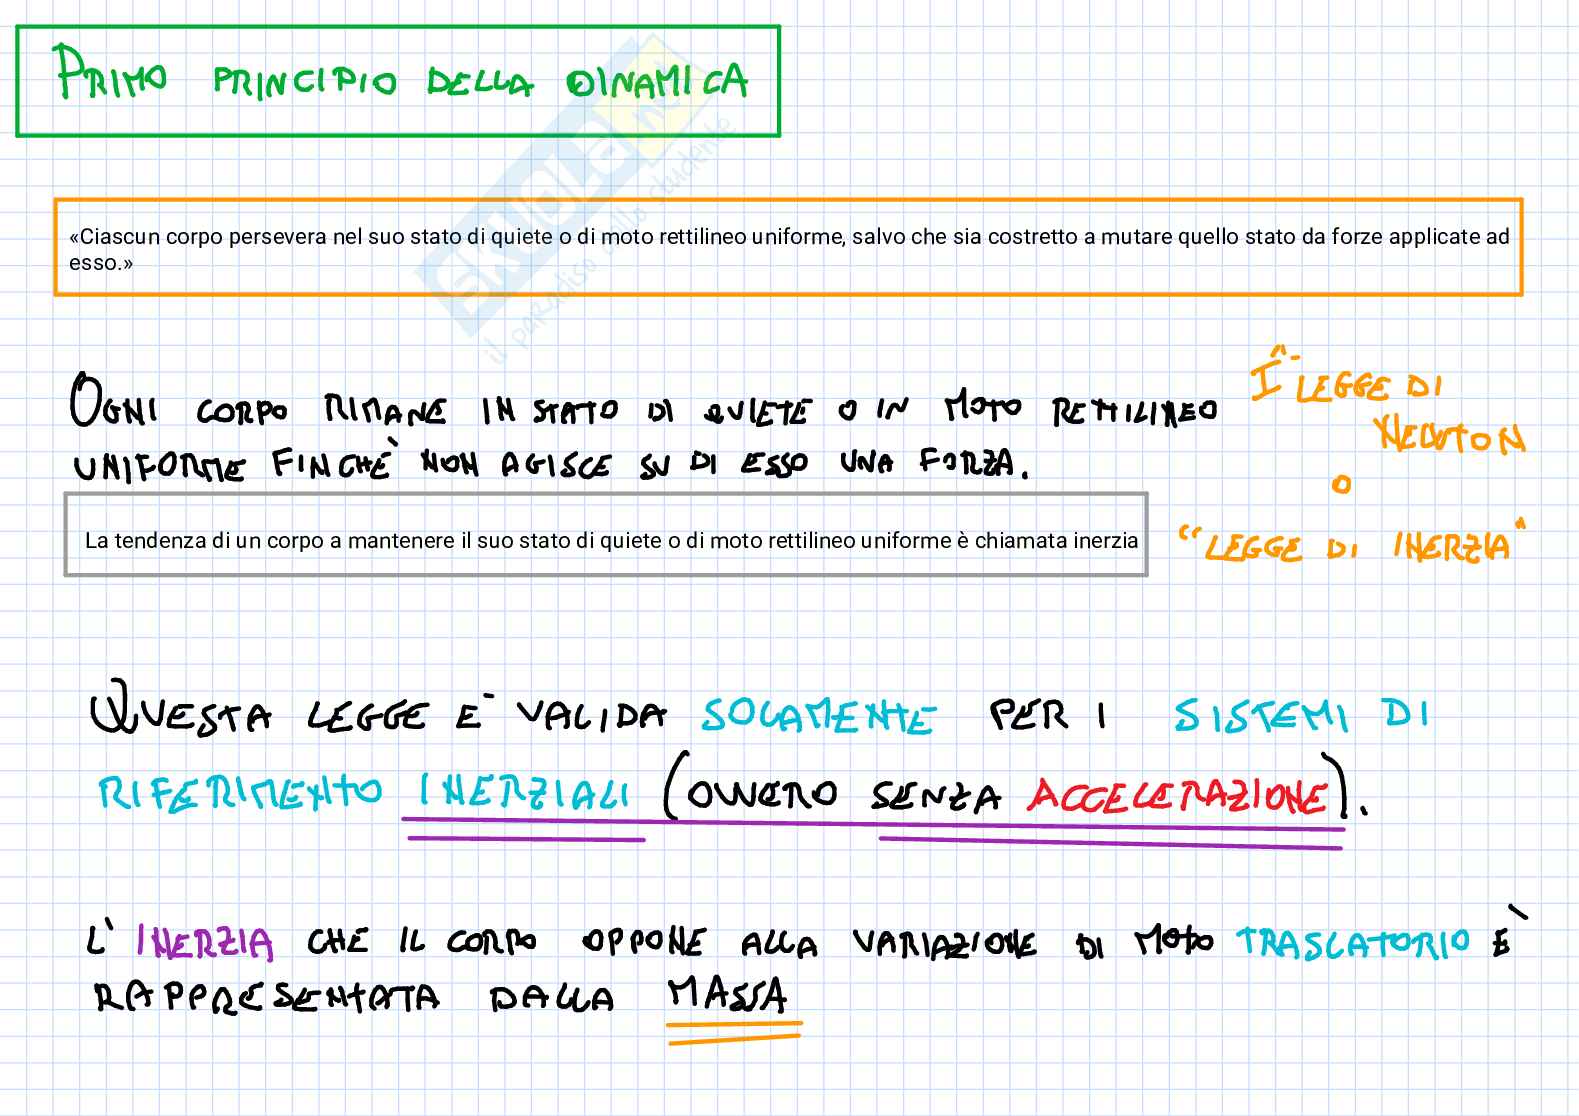 PRIMO PRINCIPIO DELLA DINAMICA
SKUOLA.net
il paradiso dello studente
«Ciascun corpo persevera nel suo stato di quiete o di moto rettilineo uniforme, salvo che sia costretto a mutare quello stato da forze applicate ad
esso.»
OGNI CORPO RIMANE IN STATO DI QUIETE O IN MOTO RETTILINEO
UNIFORME FINCHÈ NON AGISCE SU DI ESSO UNA FORZA.
I^ LEGGE DI
NEWTON
O
"LEGGE DI INERZIA"
La tendenza di un corpo a mantenere il suo stato di quiete o di moto rettilineo uniforme è chiamata inerzia
QUESTA LEGGE È VALIDA SOLAMENTE PER I SISTEMI DI
RIFERIMENTO INERZIALI (OVVERO SENZA ACCELERAZIONE).
L'INERZIA CHE IL CORPO OPPONE ALLA VARIAZIONE DI MOTO TRASLATORIO È
RAPPRESENTATA DALLA MASSA